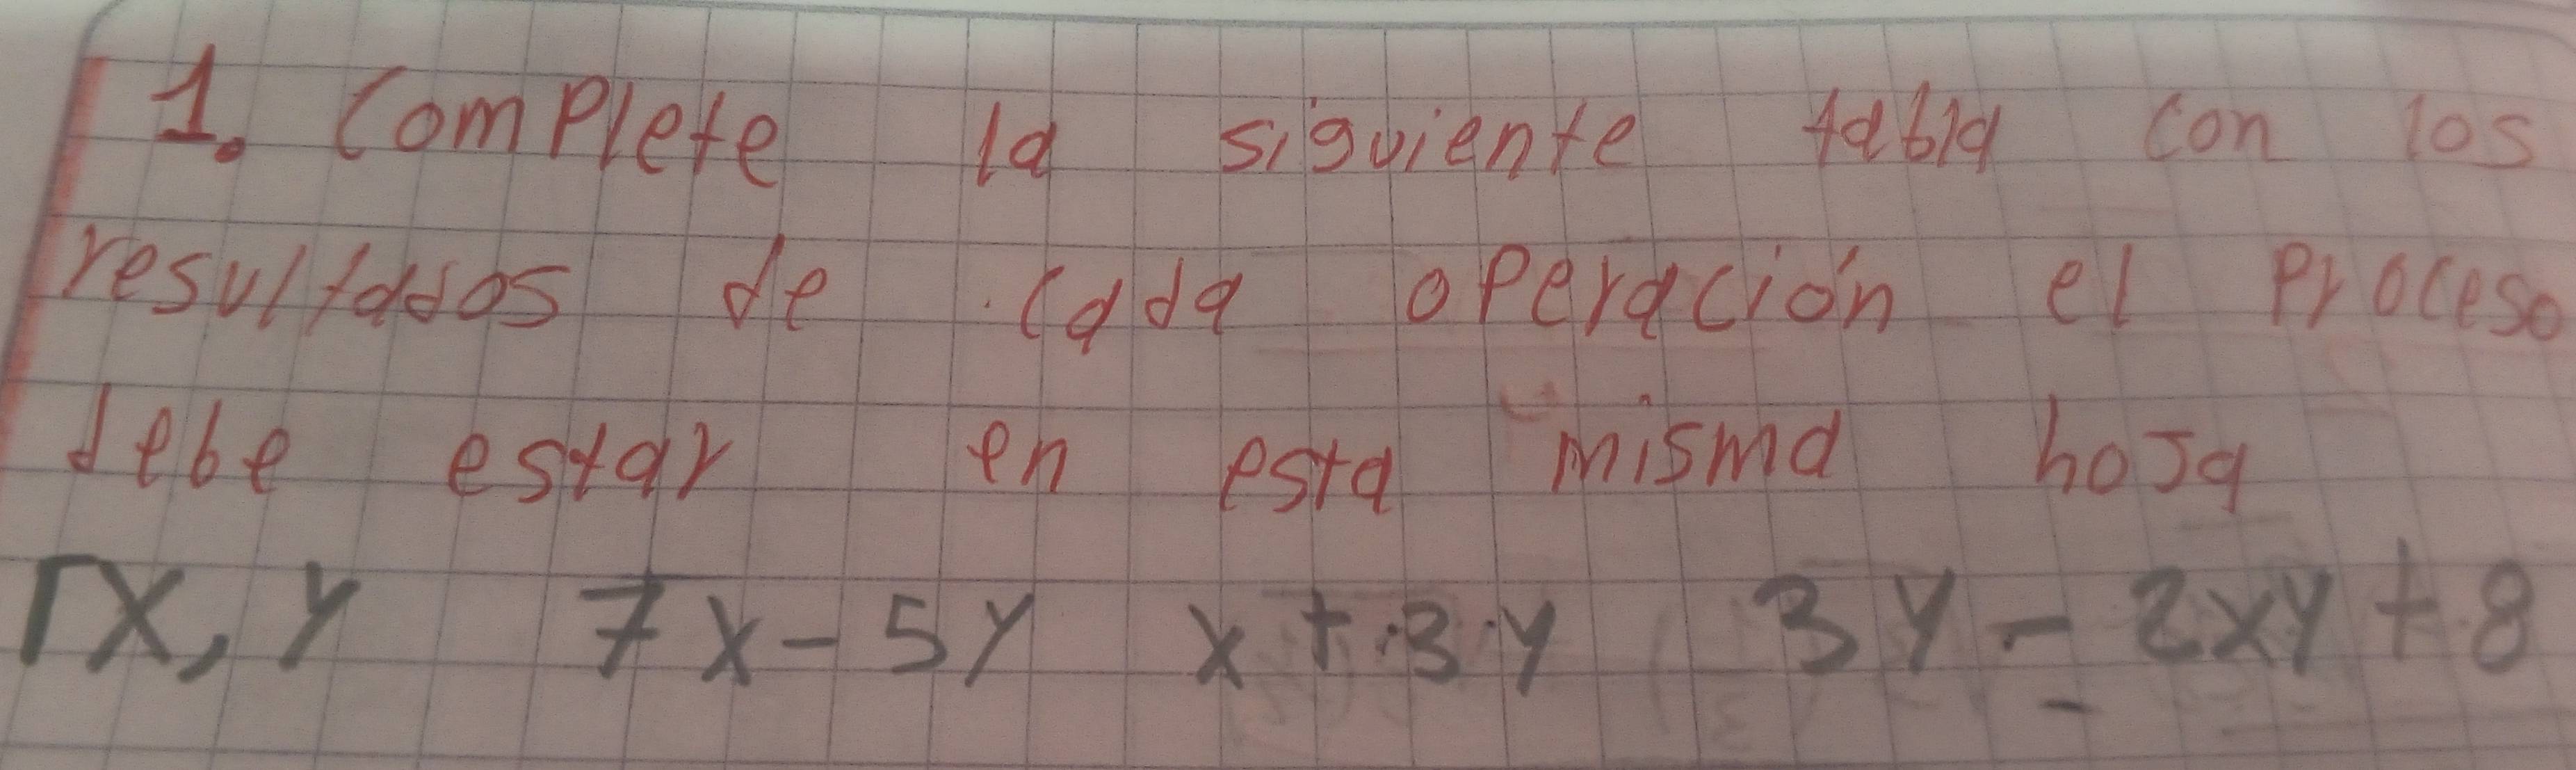 1. Complete la siguiente tabla con los
resultados de cada operación el proceso
debe estar en esta misma hoja
x, y 7x-5y x+3y 3y-2xy+8